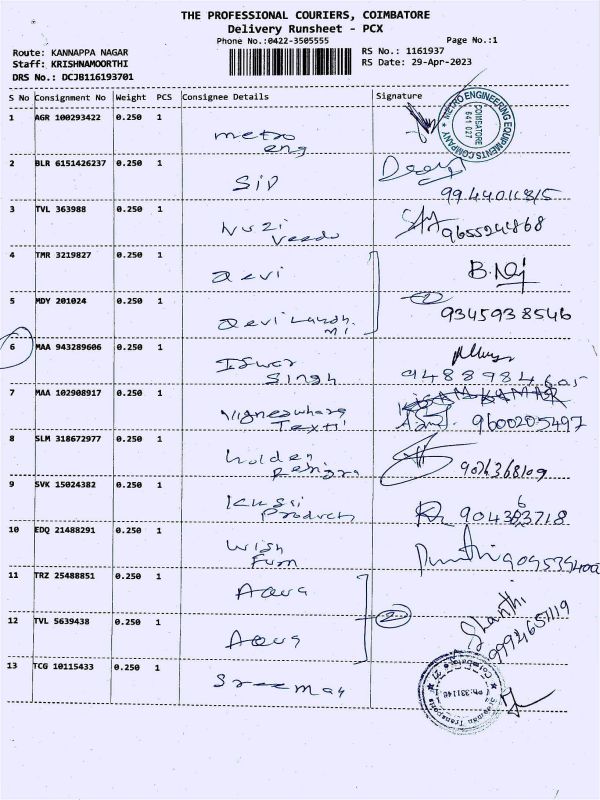 THE PROFESSIONAL COURIERS, COIMBATORE
Delivery Runsheet - PCX
Phone No.:0422-3505555
Page No.:1
Route: KANNAPPA NAGAR
RS No.: 1161937
Staff: KRISHNAMOORTHI
RS Date: 29-Apr-2023
DRS No.: DCJB116193701
S No Consignment No Weight PCS Consignee Details Signature
1 AGR 100293422 0.250 1
metro
eng
METRO ENGINEERING EQUIPMENTS COMPANY
COIMBATORE
641 027
2 BLR 6151426237 0.250 1
SID
3 TVL 363988 0.250 1
9655244868
4 TMR 3219827 0.250 1
Devi
5 MDY 201024 0.250 1
Devi
9345938546
6 MAA 943289606 0.250 1
Iswar
Singh
7 MAA 102908917 0.250 1
Vigneswhara
Texti
9600205497
8 SLM 318672977 0.250 1
9SVK 15024382 0.250 1
Product
10 EDQ 21488291 0.250 1
Wish
Furn
11 TRZ 25488851 0.250 1
Aqua
12 TVL 5639438 0.250 1
Aqua
2
Shanthi
9994657119
13 TCG 10115433 0.250 1
Sree Man
Coimbatore